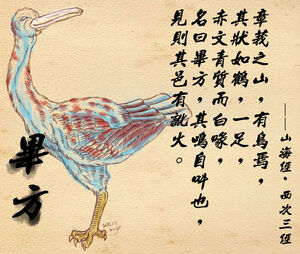 章莪之山，有鳥焉，
其狀如鶴，一足，
赤文青質而白喙，
名曰畢方，其鳴自叫也，
見則其邑有訛火。
——山海經·西次三經
畢方